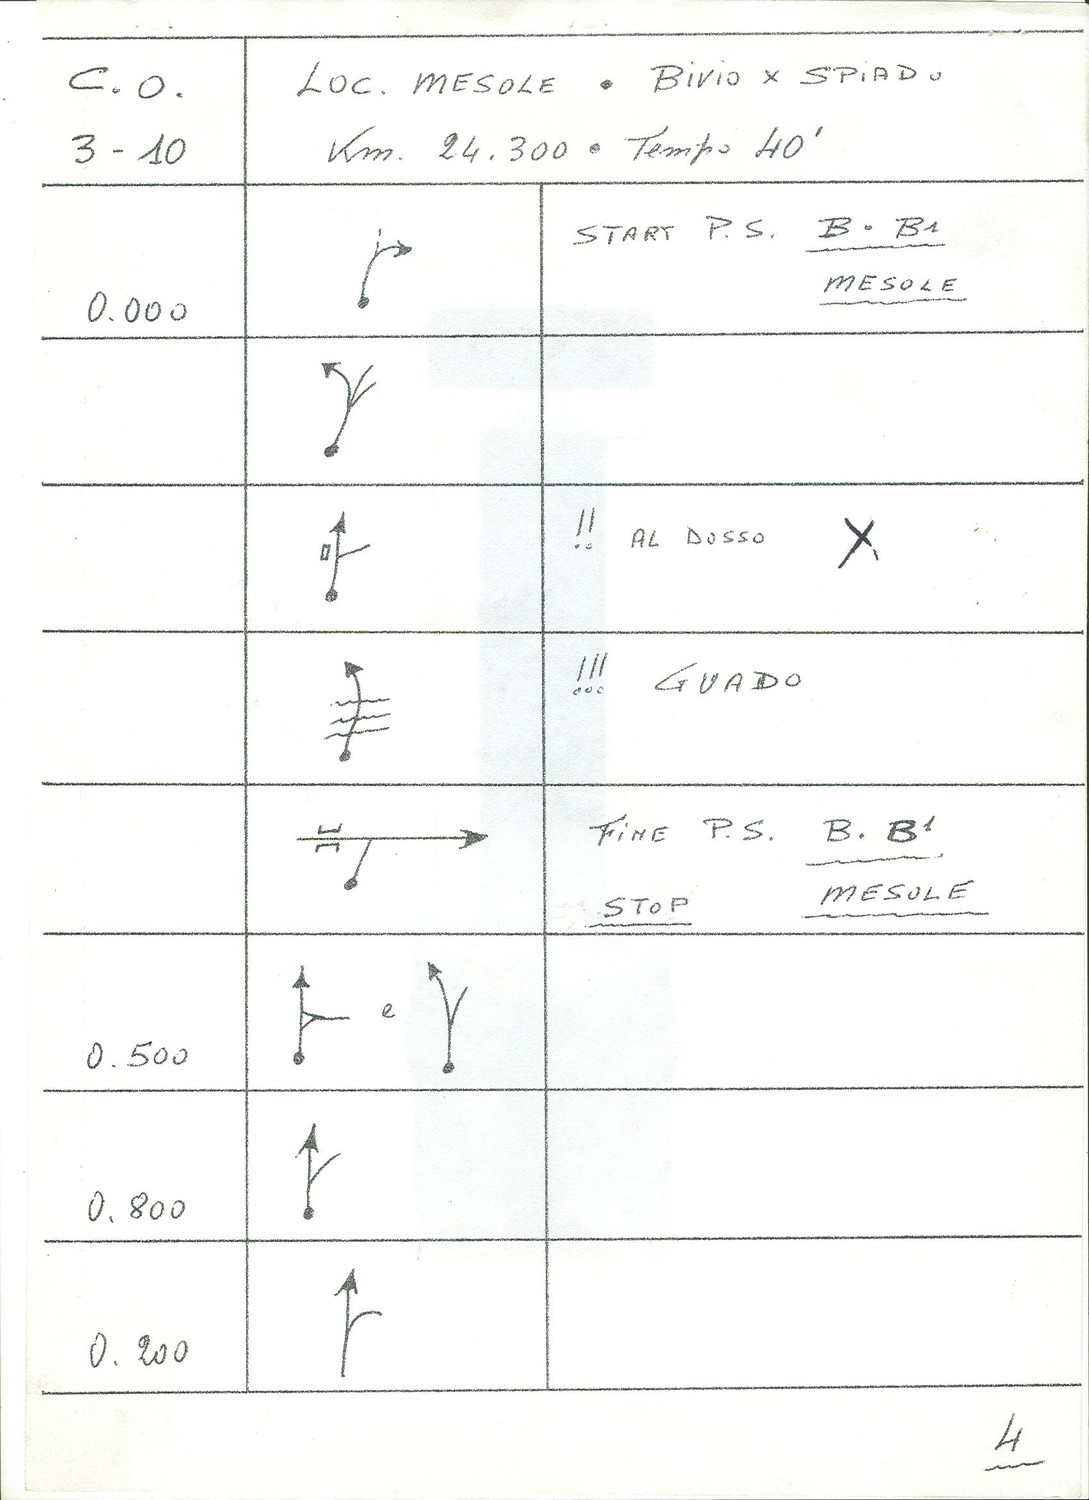 C.O.
3-10
LOC. MESOLE • BIVIO x SPIADO
Km. 24.300 • Tempo 40'
0.000
START P.S. B • B1
MESOLE
!! AL DOSSO X
!!! GUADO
FINE P.S. B. B1
STOP MESOLE
0.500
e
0.800
0.200
4